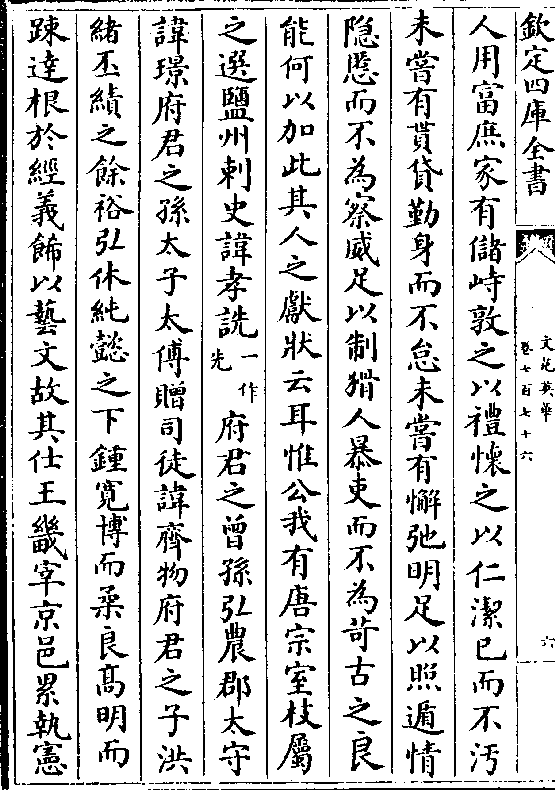 欽定四庫全書
文苑英華
卷七百七十六
六
人用富庶家有儲峙敦之以禮懷之以仁潔已而不汚
未嘗有貰貸勤身而不怠未嘗有懈弛明足以照遁情
隐慝而不為察威足以制猾人暴吏而不為苛古之良
能何以加此其人之獻狀云耳惟公我有唐宗室枝屬
之選鹽州刺史諱孝詵一作先府君之曾孫弘農郡太守
諱璟府君之孫太子太傅贈司徒諱齊物府君之子洪
緒丕績之餘裕弘休純懿之下鍾寛博而柔良髙明而
踈達根於經義飾以藝文故其仕王畿宰京邑累執憲